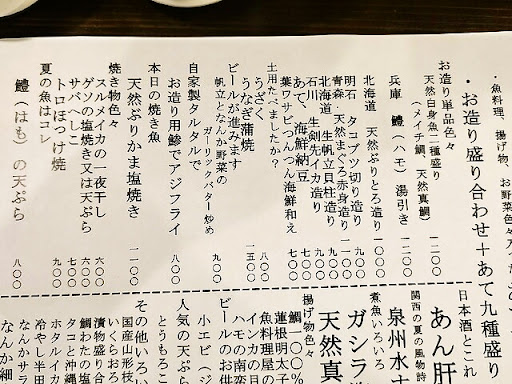 ・魚料理、揚げ物、お野菜色々入っ
・お造り盛り合わせ+あて九種盛り
お造り単品色々
天然白身魚二種盛り 一二〇〇
(メイチ鯛、天然真鯛)
兵庫 鱧(ハモ)湯引き 一二〇〇
北海道 天然ぶりとろ造り 一〇〇〇
明石 タコブツ切り造り
青森 天然まぐろ赤身造り
北海道 生帆立貝柱造り
石川 生剣先イカ造り
あて、海鮮納豆 七〇〇
葉ワサビつんつん海鮮和え 七〇〇
土用たべましたか?
うざく 八〇〇
うなぎ蒲焼 一五〇〇
ビールが進みます
帆立となんか野菜の
ガーリックバター炒め 九〇〇
自家製タルタルで
お造り用鯵でアジフライ 八〇〇
本日の焼き魚
天然ぶりかま塩焼き 一一〇〇
焼き物色々
スルメイカの一夜干し 六〇〇
ゲソの塩焼き又は天ぷら 六〇〇
サバへしこ 七〇〇
トロほっけ焼
夏の魚はコレ
鱧(はも)の天ぷら 八〇〇
日本酒とこれ
あん肝
関西の夏の風物詩
泉州水
煮魚いろいろ
ガシラ
天然真
揚げ物色々
鯛一〇〇%
蓮根明太子
魚料理屋の
インカの目
ハモの南蛮
ビールのお供
小エビ(ジ
人気の天ぷら
とうもろこ
その他いろい
国産山形枝
いくらおろ
漬物盛り合
鯛わたの塩
タコと沖縄
ホタルイカ
冷やし半
なんかサラ
なんか細